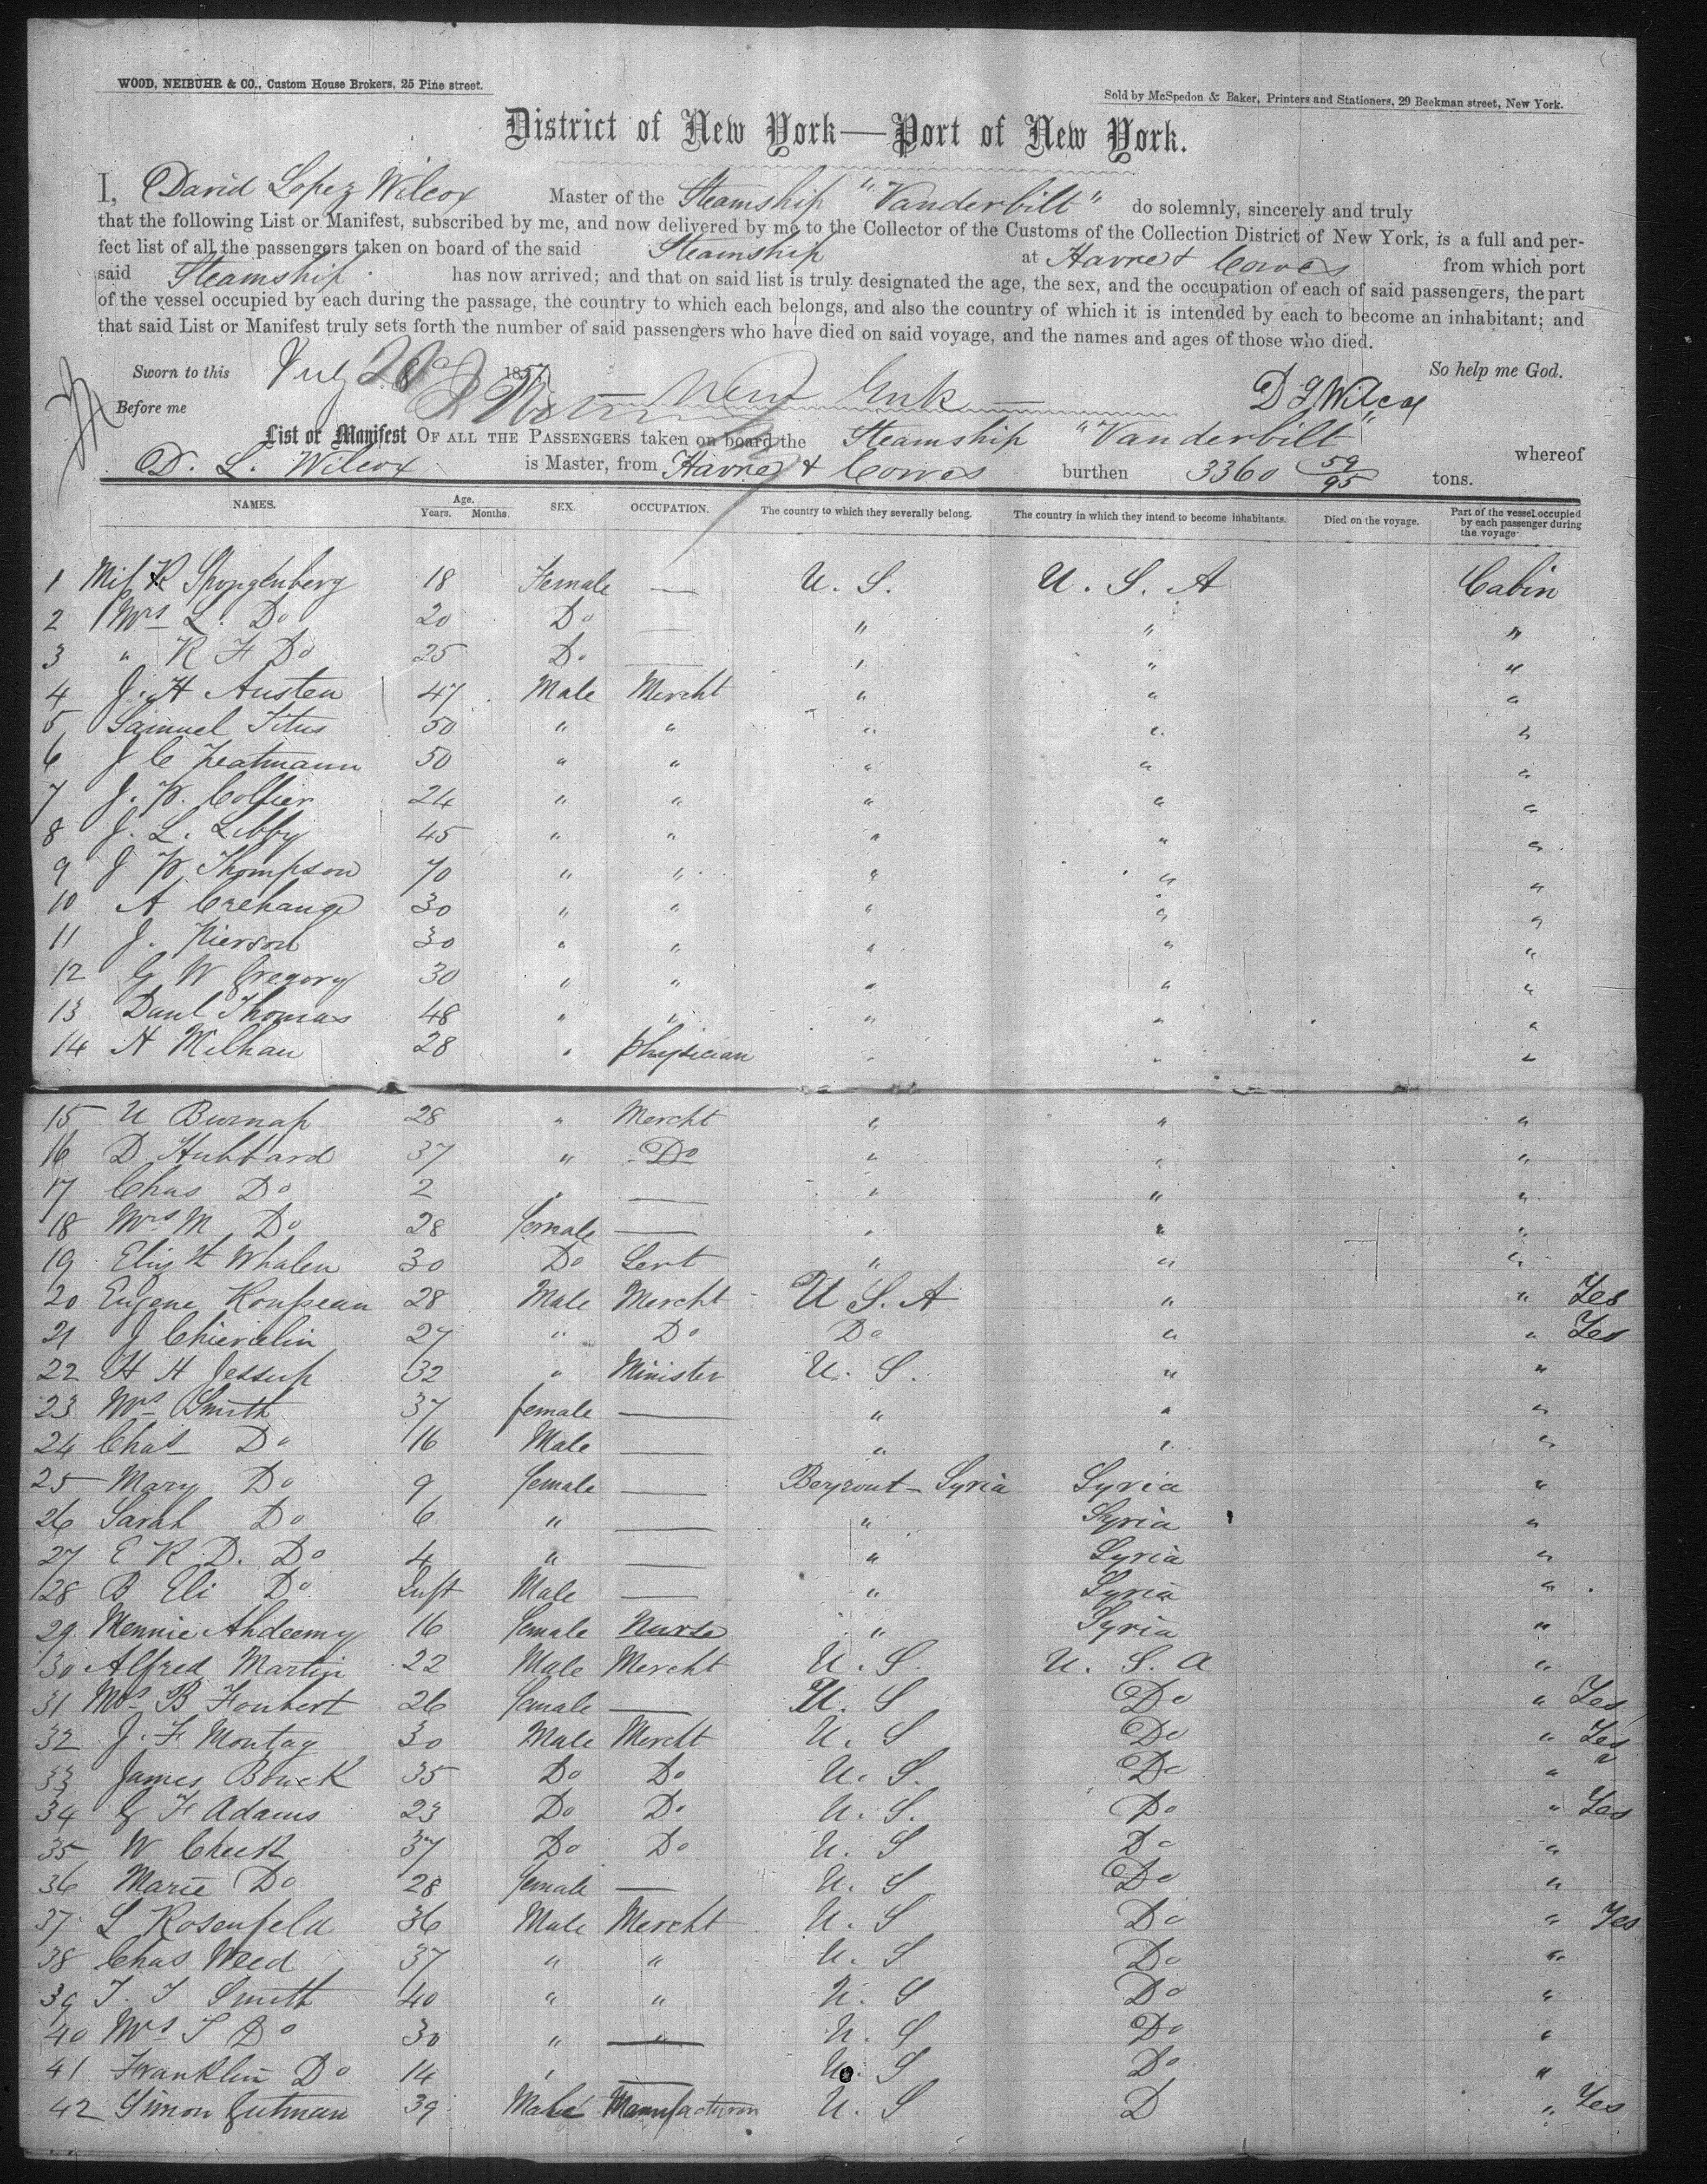 WOOD, NEIBUHR & CO., Custom House Brokers, 25 Pine street.
Sold by McSpedon & Baker, Printers and Stationers, 29 Beekman street, New York.
District of New York—Port of New York.
I, David Lopez Wilcox Master of the Steamship "Vanderbilt" do solemnly, sincerely and truly
that the following List or Manifest, subscribed by me, and now delivered by me to the Collector of the Customs of the Collection District of New York, is a full and per-
fect list of all the passengers taken on board of the said Steamship at Havre & Cowes from which port
said Steamship has now arrived; and that on said list is truly designated the age, the sex, and the occupation of each of said passengers, the part
of the vessel occupied by each during the passage, the country to which each belongs, and also the country of which it is intended by each to become an inhabitant; and
that said List or Manifest truly sets forth the number of said passengers who have died on said voyage, and the names and ages of those who died.
Sworn to this July 28 1857 So help me God.
Before me D L Wilcox
List or Manifest OF ALL THE PASSENGERS taken on board the Steamship "Vanderbilt" whereof
D. L. Wilcox is Master, from Havre & Cowes burthen 3360 59/95 tons.
NAMES. Age. Years. Months. SEX. OCCUPATION. The country to which they severally belong. The country in which they intend to become inhabitants. Died on the voyage. Part of the vessel occupied by each passenger during the voyage
1 Miss K Spongenberg 18 Female — U. S. U. S. A Cabin
2 Mrs L. Do 20 Do — " " "
3 " R H Do 25 Do — " " "
4 J. H Austen 47 Male Mercht " " "
5 Samuel Titus 50 " " " " "
6 J C 50 " " " " "
7 J. W. Collier 24 " " " " "
8 J. L. Libby 45 " " " " "
9 J W Thompson 70 " " " " "
10 A Crehange 30 " " " " "
11 J. Pierson 30 " " " " "
12 G W Gregory 30 " " " " "
13 Danl Thomas 48 " " " " "
14 H Milhau 28 " Physician " " "
15 U Burnap 28 " Mercht " " "
16 D Hubbard 37 " Do " " "
17 Chas Do 2 " — " " "
18 Mrs M Do 28 female — " " "
19 Elizth Whalen 30 Do Sert " " "
20 Eugene Rousseau 28 Male Mercht U S. A " " Yes
21 J 27 " Do Do " " Yes
22 H H Jessup 32 " Minister U. S. " "
23 Mrs Smith 37 female — " " "
24 Chas Do 16 Male — " " "
25 Mary Do 9 female — Beyrout - Syria Syria "
26 Sarah Do 6 " — " Syria "
27 E R D. Do 4 " — " Syria "
28 B Eli Do Inft Male — " Syria "
29 Mennie Ahdeemy 16 female Nurse " Syria "
30 Alfred Martin 22 Male Mercht U. S. U. S. A "
31 Mrs B Foubert 26 female — U. S Do " Yes
32 J. F Montag 30 Male Mercht U. S Do " Yes
33 James Bouck 35 Do Do U. S. Do "
34 G F Adams 23 Do Do U. S. Do " Yes
35 W Cheek 37 Do Do U. S Do "
36 Marie Do 28 female — U. S Do "
37 L Rosenfeld 36 Male Mercht U. S Do " Yes
38 Chas Weed 37 " " U. S Do "
39 T. T Smith 40 " " U. S Do "
40 Mrs T Do 30 " — U. S Do "
41 Franklin Do 14 " — U. S Do "
42 Simon Gutman 39 Male Manufacturer U. S D " Yes